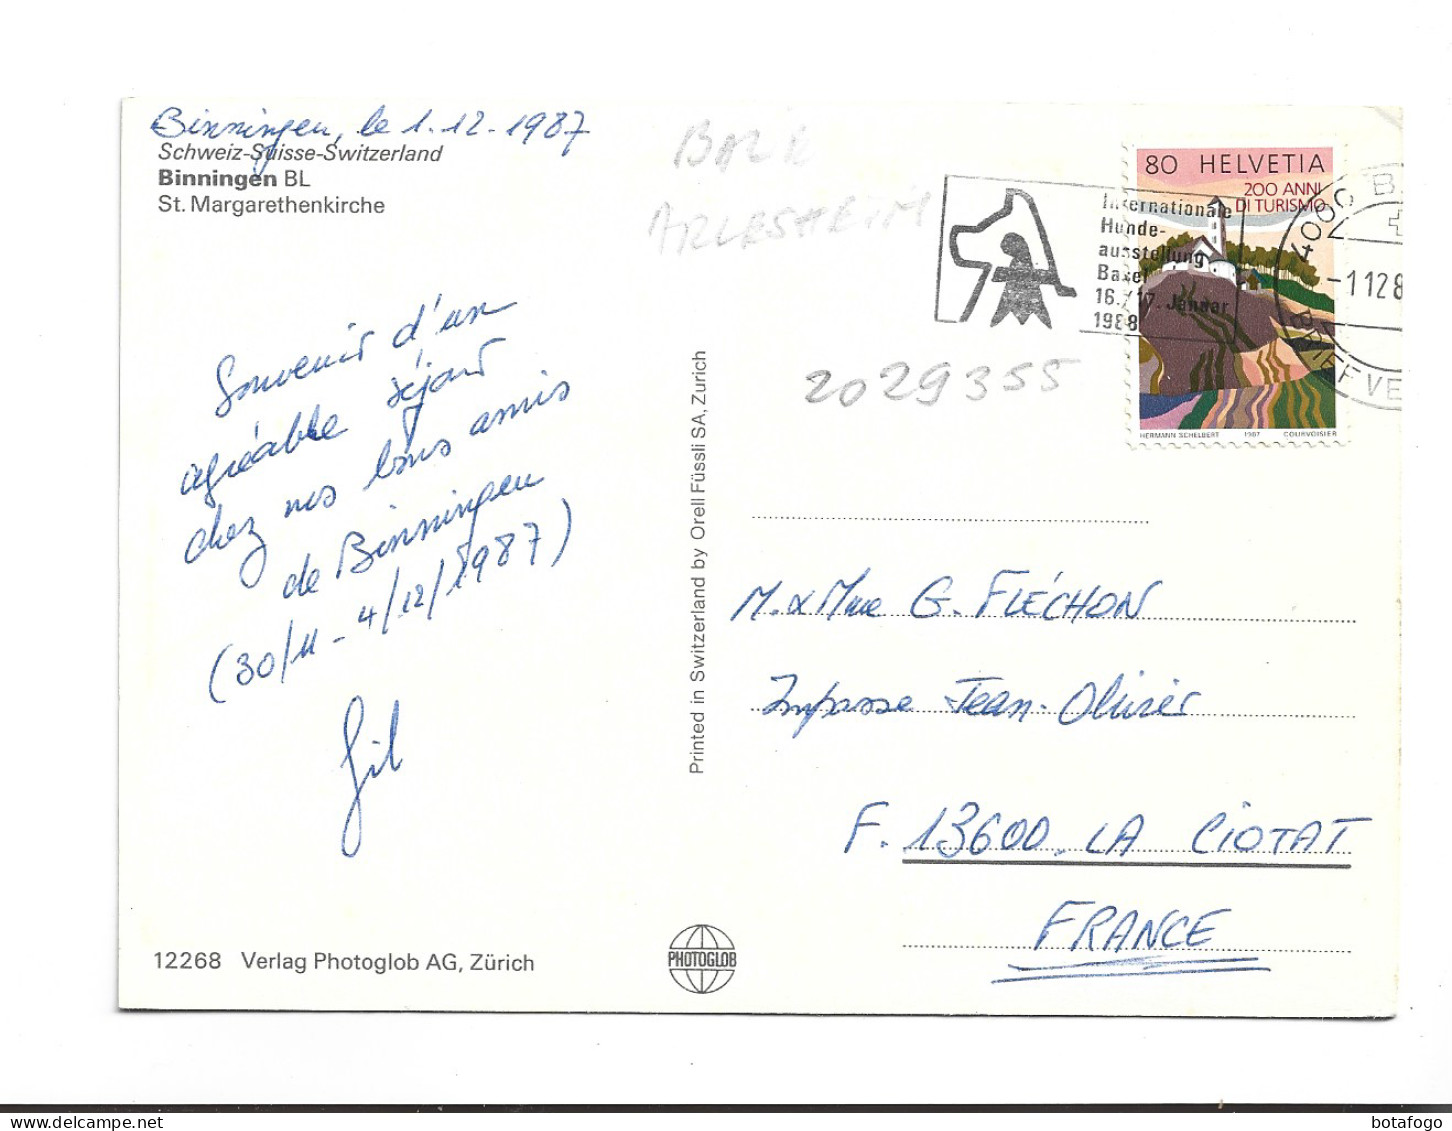 Binningen, le 1.12-1987
Schweiz-Suisse-Switzerland
Binningen BL
St. Margarethenkirche
Souvenir d'un
agréable séjour
chez nos bons amis
de Binningen
(30/11 - 4/12/1987)
Gil
12268 Verlag Photoglob AG, Zürich
Printed in Switzerland by Orell Füssli SA, Zurich
PHOTOGLOB
ARLESHEIM
2029355
Internationale
Hunde-
ausstellung
Basel
16./17. Januar
1988
80 HELVETIA
200 ANNI
DI TURISMO
HERMANN SCHELBERT 1987 COURVOISIER
4000 B
-1128
BRIEFVE
M. & Mme G. FLÉCHON
Impasse Jean-Olivier
F. 13600. LA CIOTAT
FRANCE
botafogo